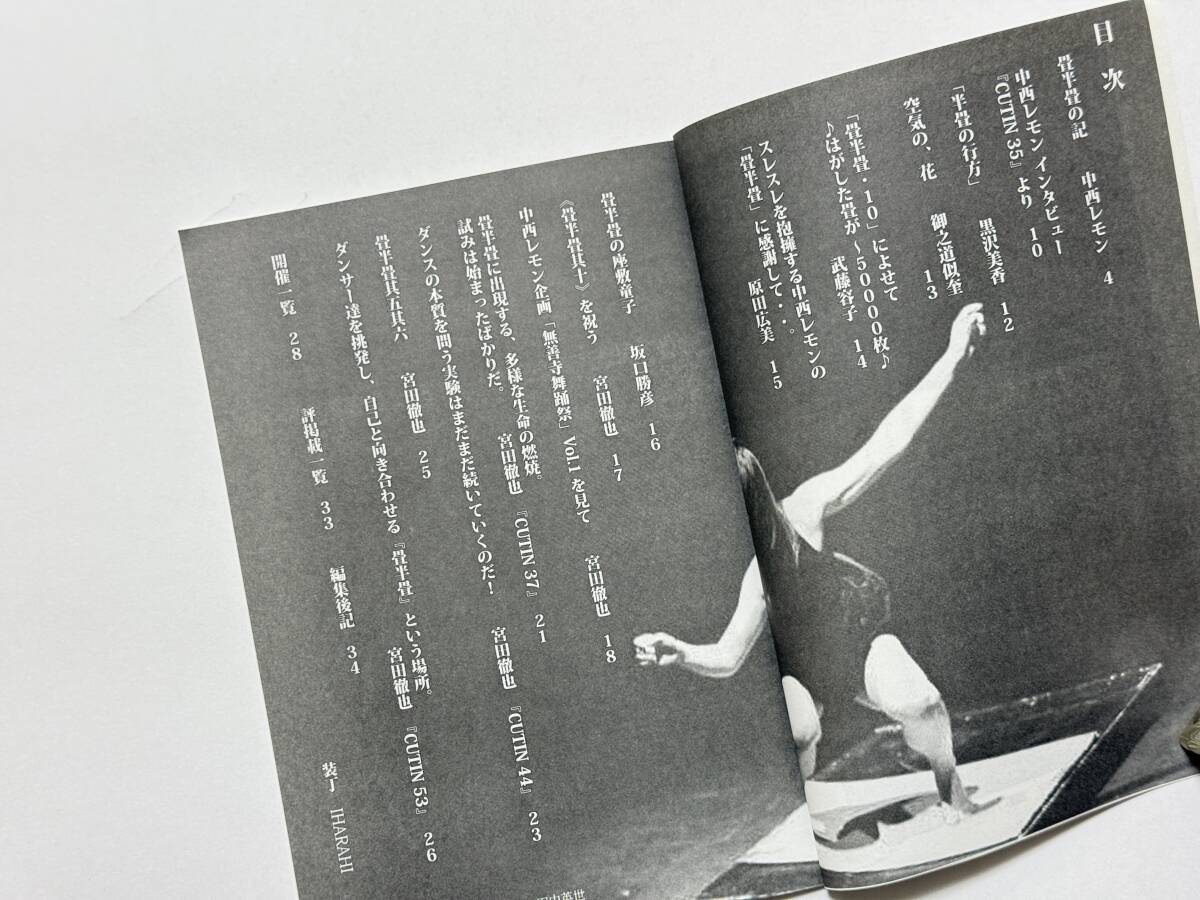 目次
畳半畳の記 中西レモン 4
中西レモンインタビュー
『CUTIN 35』より 10
「半畳の行方」 黒沢美香 12
空気の、花 御之道似奎 13
「畳半畳・10」によせて
♪はがした畳が～50000枚♪ 武藤容子 14
スレスレを抱擁する中西レモンの
「畳半畳」に感謝して・・。 原田広美 15
畳半畳の座敷童子 坂口勝彦 16
《畳半畳其十》を祝う 宮田徹也 17
中西レモン企画「無善寺舞踊祭」Vol.1を見て 宮田徹也 18
畳半畳に出現する、多様な生命の燃焼。
試みは始まったばかりだ。 宮田徹也『CUTIN 37』 21
ダンスの本質を問う実験はまだまだ続いていくのだ！ 宮田徹也『CUTIN 44』 23
畳半畳其五其六 宮田徹也 25
ダンサー達を挑発し、自己と向き合わせる『畳半畳』という場所。 宮田徹也『CUTIN 53』 26
開催一覧 28 評掲載一覧 33 編集後記 34
装丁 IHARAHI